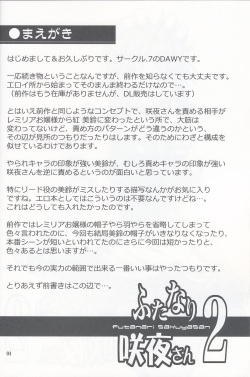 ●まえがき
はじめまして＆お久しぶりです。サークル.7のDAWYです。
一応続き物ということなんですが、前作を知らなくても大丈夫です。
エロイ所から始まってそのまま終わるだけなので…。
（もう前作は在庫がありませんが、DL販売はしています）
とはいえ前作と同じようなコンセプトで、咲夜を責める相手が
レミリアお嬢様から紅 美鈴に変わったという所で、大筋は
変わってないけど、責め方のパターンがどう違うのかという、
その辺が見所のつもりだったりはします。そのためにわざと構成を
似せているわけであります。
やられキャラの印象が強い美鈴が、むしろ責めキャラの印象が強い
咲夜さんを逆に責めるというのが面白いと思っています。
特にリード役の美鈴がミスしたりする描写なんかがお気に入り
ですね。エロ本としてはこういうのは不要なんですけどね…。
これはどうしても入れたかったのです。
前作ではレミリアお嬢様の帽子や羽やらを省略してしまって
色々言われたのに、今回も結局美鈴の帽子がいきなりなくなったり、
本番シーンが短いといわれてたのにさらに今回は短かったりと、
色々あるとは思いますが…。
それでも今の実力の範囲で出来る一番いい事はやったつもりです。
とりあえず前書きはこの辺で…。
ふたなり
Futanari Sakuyasan
咲夜さん
2